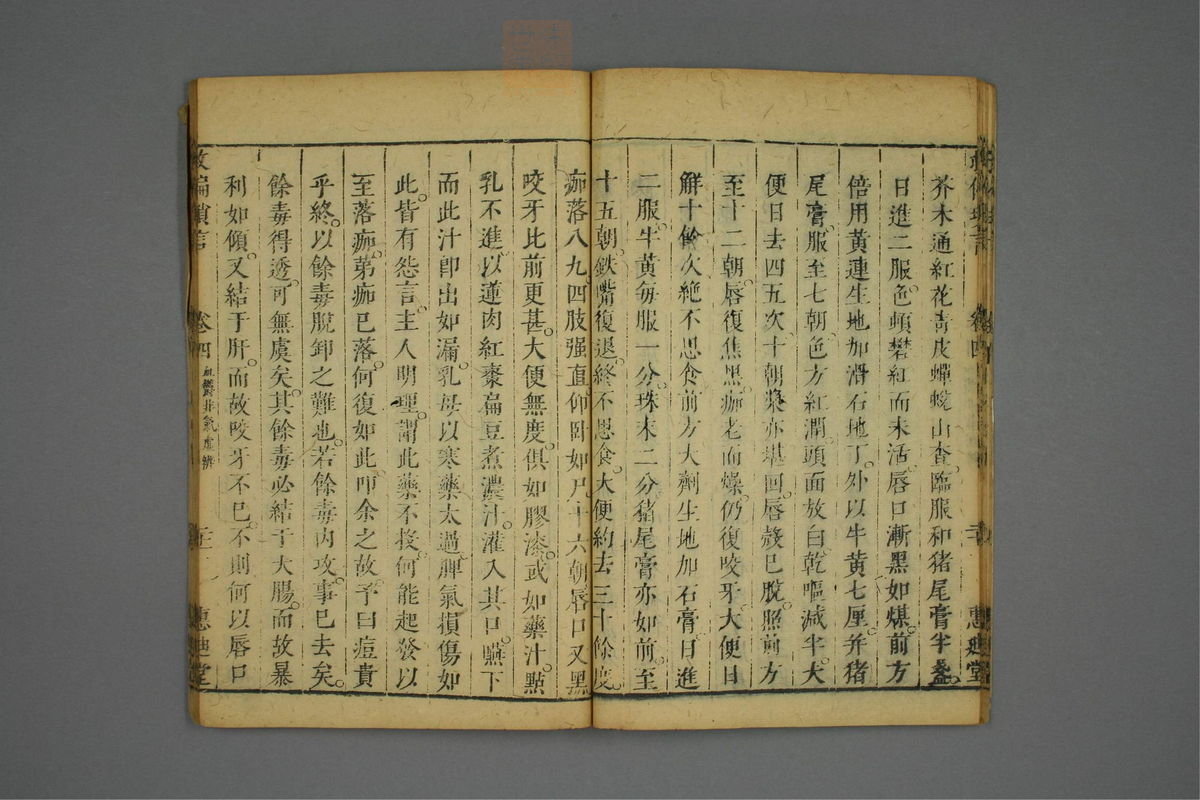 芥木通紅花青皮蟬蛻山查臨服和猪尾膏半盞
日進二服色頓礬紅而未活唇口漸黑如煤前方
倍用黃連生地加滑石地丁外以牛黃七厘并猪
尾膏服至七朝色方紅潤頭面放白乾嘔減半大
便日去四五次十朝漿亦堪回唇殼已脫照前方
至十二朝唇復焦黑痂老而燥仍復咬牙大便日
解十餘次絶不思食前方大劑生地加石膏日進
二服牛黃每服一分珠末二分猪尾膏亦如前至
十五朝鉄嘴復退終不思食大便約去三十餘度
痂落八九四肢强直仰卧如尸十六朝唇口又黑
咬牙比前更甚大便無度俱如膠漆或如藥汁點
乳不進以蓮肉紅棗扁豆煮濃汁灌入其口嚥下
而此汁卽出如漏乳母以寒藥太過脾氣損傷如
此皆有怨言主人明理謂此藥不投何能起發以
至落痂苐痂已落何復如此叩余之故予曰痘貴
乎終以餘毒脫卸之難也若餘毒内攻事已去矣
餘毒得透可無虞矣其餘毒必結于大腸而故暴
利如傾又結于肝而故咬牙不已不則何以唇口
救偏瑣言
卷四
血鬱非氣虛辨
惠迪堂